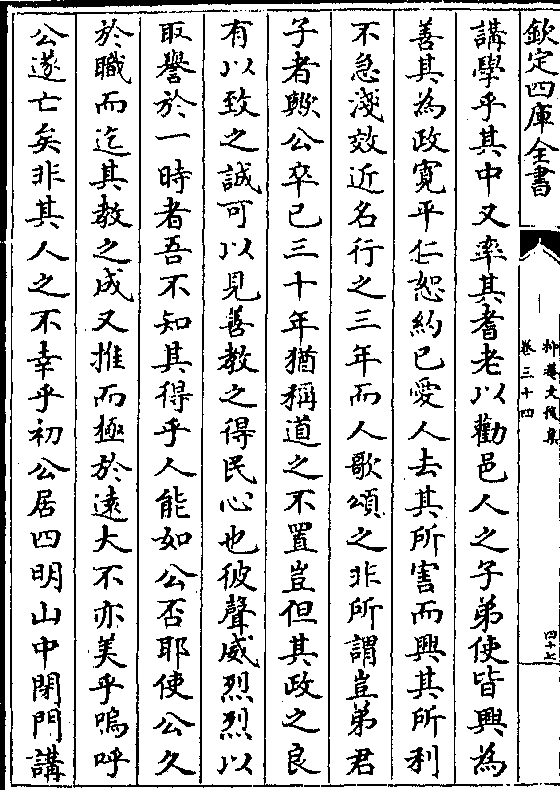 欽定四庫全書
抑菴文後集
卷三十四
四十七
講學乎其中又率其耆老以勸邑人之子弟使皆興為
善其為政寛平仁恕約已愛人去其所害而興其所利
不急淺效近名行之三年而人歌頌之非所謂豈弟君
子者歟公卒已三十年猶稱道之不置豈但其政之良
有以致之誠可以見善教之得民心也彼聲威烈烈以
取譽於一時者吾不知其得乎人能如公否耶使公久
於職而迄其教之成又推而極於遠大不亦美乎嗚呼
公遂亡矣非其人之不幸乎初公居四明山中閉門講